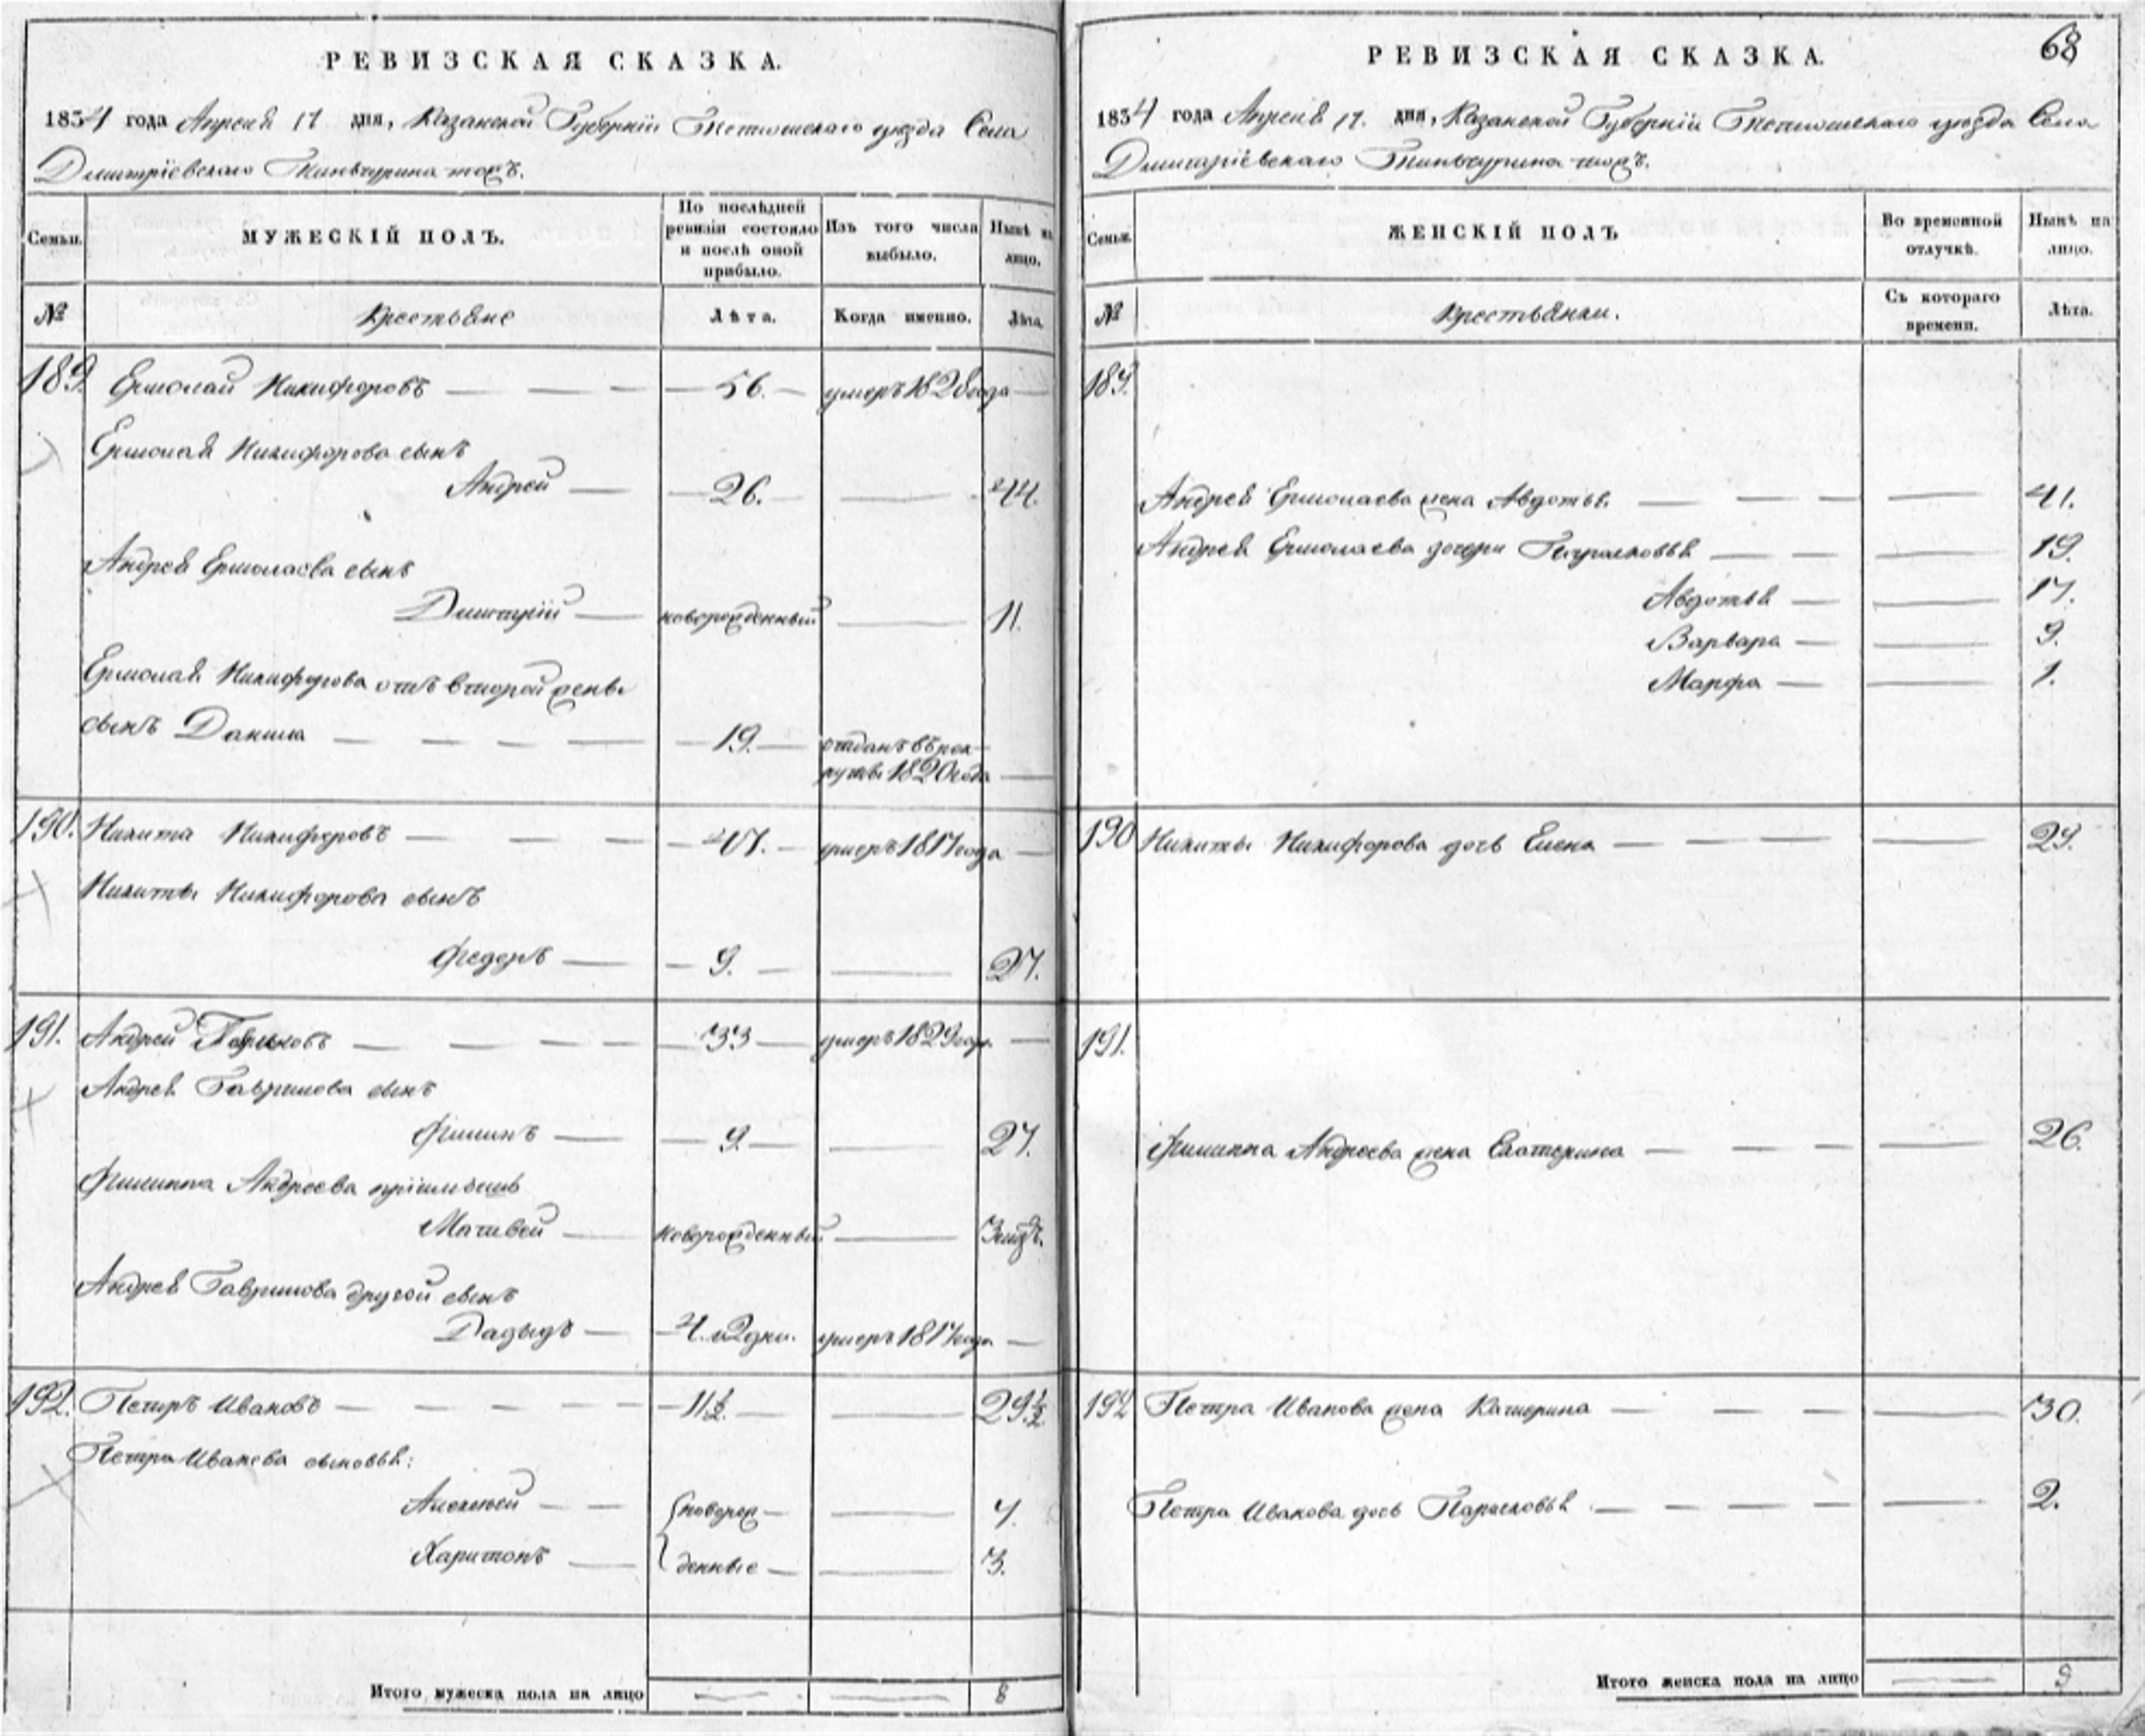 РЕВИЗСКАЯ СКАЗКА.
1834 года Апреля 17 дня, Казанской Губернiи Тетюшскаго уезда Села
Дмитрiевскаго Тинчурина тожъ.
Семьи.
МУЖЕСКIЙ ПОЛЪ.
По послѣдней ревизiи состояло и послѣ оной прибыло.
Изъ того числа выбыло.
Нынѣ на лицо.
№
Крестьяне
Лѣта.
Когда именно.
Лѣта.
189. Ермолай Никифоровъ — 56. — умеръ 1828 года —
Ермолая Никифорова сынъ
Андрей — 26. — 44.
Андрея Ермолаева сынъ
Дмитрiй — новорожденный — 11.
Ермолая Никифорова отъ второй жены
сынъ Данила — 19. — отданъ въ рек-
руты 1820 года —
190. Никита Никифоровъ — 47. — умеръ 1817 года —
Никиты Никифорова сынъ
Федоръ — 9. — 27.
191. Андрей Гавриловъ — 33 — умеръ 1829 года —
Андрея Гаврилова сынъ
Филипъ — 9. — 27.
Филиппа Андреева прiимышъ
Матвей — новорожденный — 3
Андрея Гаврилова другой сынъ
Давыдъ — умеръ 1817 года —
192. Петръ Ивановъ — 11½. — 29½
Петра Иванова сыновья:
Алексей — новорож- — 7.
Харитонъ — денные — 3.
Итого мужеска пола на лицо — — 8
68
РЕВИЗСКАЯ СКАЗКА.
1834 года Апреля 17. дня, Казанской Губернiи Тетюшскаго уезда Села
Дмитрiевскаго Тинчурина тожъ.
Семьи.
ЖЕНСКIЙ ПОЛЪ
Во временной отлучкѣ.
Нынѣ на лицо.
№
Крестьянки.
Съ котораго времени.
Лѣта.
189.
Андрея Ермолаева жена Авдотья — 41.
Андрея Ермолаева дочери Парасковья — 19.
Авдотья — 17.
Варвара — 9.
Марфа — 1.
190 Никиты Никифорова дочь Елена — 29.
191.
Филиппа Андреева жена Екатерина — 26.
192 Петра Иванова жена Катерина — 30.
Петра Иванова дочь Парасковья — 2.
Итого женска пола на лицо — 9